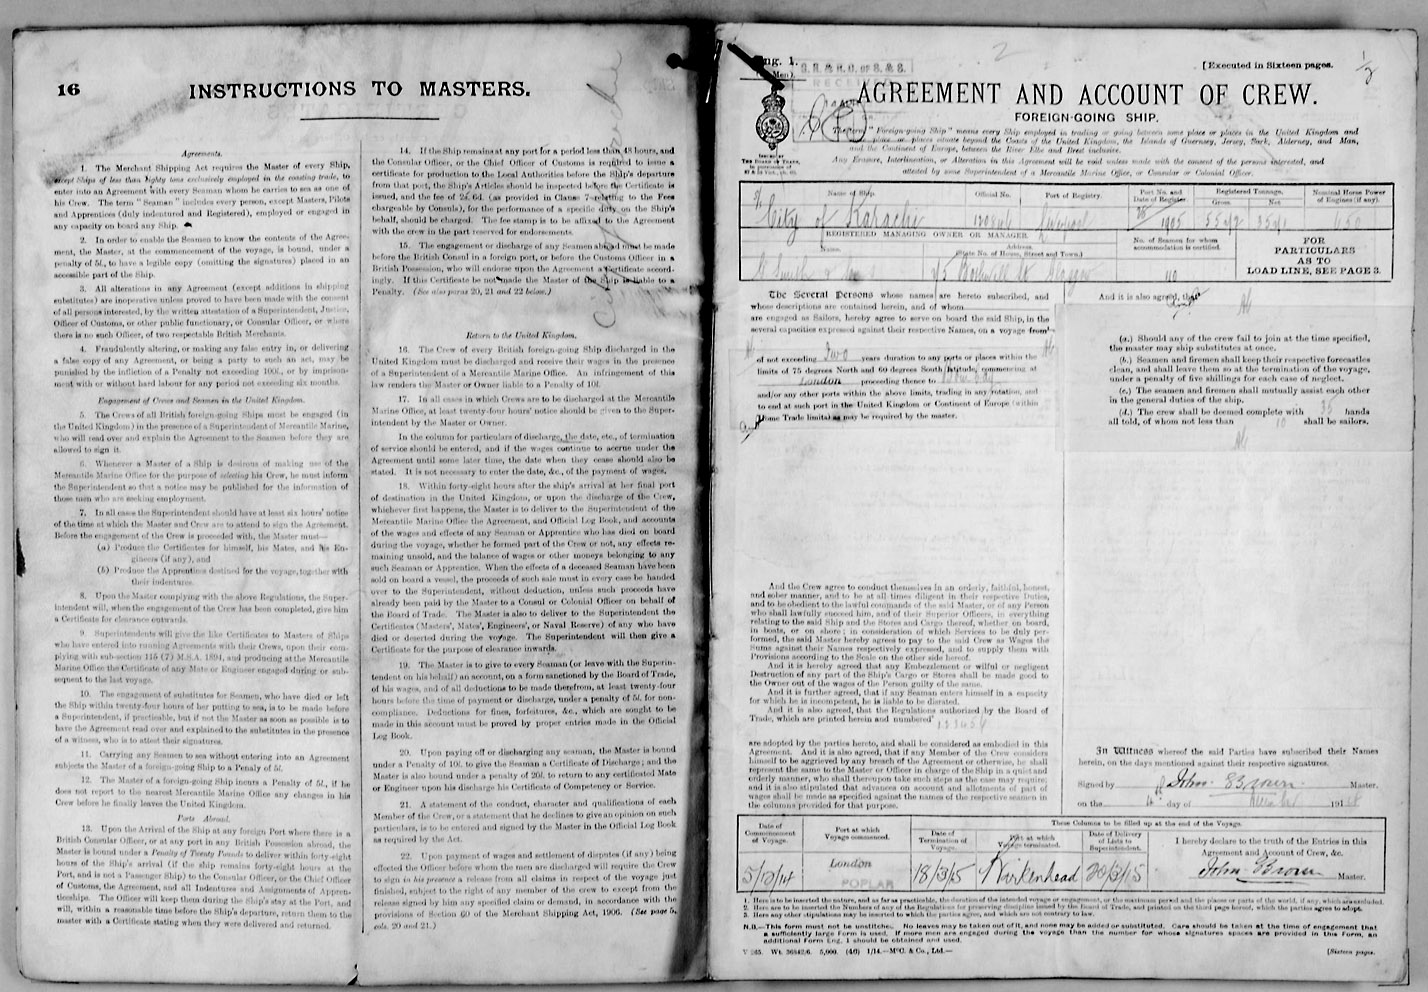 16
INSTRUCTIONS TO MASTERS.
Agreements.
1. The Merchant Shipping Act requires the Master of every Ship,
except Ships of less than eighty tons exclusively employed in the coasting trade, to
enter into an Agreement with every Seaman whom he carries to sea as one of
his Crew. The term "Seaman" includes every person, except Masters, Pilots
and Apprentices (duly indentured and Registered), employed or engaged in
any capacity on board any Ship.
2. In order to enable the Seamen to know the contents of the Agree-
ment, the Master, at the commencement of the voyage, is bound, under a
penalty of 5l., to have a legible copy (omitting the signatures) placed in an
accessible part of the Ship.
3. All alterations in any Agreement (except additions in shipping
substitutes) are inoperative unless proved to have been made with the consent
of all persons interested, by the written attestation of a Superintendent, Justice,
Officer of Customs, or other public functionary, or Consular Officer, or where
there is no such Officer, of two respectable British Merchants.
4. Fraudulently altering, or making any false entry in, or delivering
a false copy of any Agreement, or being a party to such an act, may be
punished by the infliction of a Penalty not exceeding 100l., or by imprison-
ment with or without hard labour for any period not exceeding six months.
Engagement of Crews and Seamen in the United Kingdom.
5. The Crews of all British foreign-going Ships must be engaged (in
the United Kingdom) in the presence of a Superintendent of Mercantile Marine,
who will read over and explain the Agreement to the Seamen before they are
allowed to sign it.
6. Whenever a Master of a Ship is desirous of making use of the
Mercantile Marine Office for the purpose of selecting his Crew, he must inform
the Superintendent so that a notice may be published for the information of
those men who are seeking employment.
7. In all cases the Superintendent should have at least six hours' notice
of the time at which the Master and Crew are to attend to sign the Agreement.
Before the engagement of the Crew is proceeded with, the Master must—
(a) Produce the Certificates for himself, his Mates, and his En-
gineers (if any), and
(b) Produce the Apprentices destined for the voyage, together with
their indentures.
8. Upon the Master complying with the above Regulations, the Super-
intendent will, when the engagement of the Crew has been completed, give him
a Certificate for clearance outwards.
9. Superintendents will give the like Certificates to Masters of Ships
who have entered into running Agreements with their Crews, upon their com-
plying with sub-section 115 (7) M.S.A. 1894, and producing at the Mercantile
Marine Office the Certificate of any Mate or Engineer engaged during or sub-
sequent to the last voyage.
10. The engagement of substitutes for Seamen, who have died or left
the Ship within twenty-four hours of her putting to sea, is to be made before
a Superintendent, if practicable, but if not the Master as soon as possible is to
have the Agreement read over and explained to the substitutes in the presence
of a witness, who is to attest their signatures.
11. Carrying any Seamen to sea without entering into an Agreement
subjects the Master of a foreign-going Ship to a Penalty of 5l.
12. The Master of a foreign-going Ship incurs a Penalty of 5l., if he
does not report to the nearest Mercantile Marine Office any changes in his
Crew before he finally leaves the United Kingdom.
Ports Abroad.
13. Upon the Arrival of the Ship at any foreign Port where there is a
British Consular Officer, or at any port in any British Possession abroad, the
Master is bound under a Penalty of Twenty Pounds to deliver within forty-eight
hours of the Ship's arrival (if the ship remains forty-eight hours at the
Port, and is not a Passenger Ship) to the Consular Officer, or the Chief Officer
of Customs, the Agreement, and all Indentures and Assignments of Appren-
ticeships. The Officer will keep them during the Ship's stay at the Port, and
will, within a reasonable time before the Ship's departure, return them to the
master with a Certificate stating when they were delivered and returned.
14. If the Ship remains at any port for a period less than 48 hours, and
the Consular Officer, or the Chief Officer of Customs is required to issue a
certificate for production to the Local Authorities before the Ship's departure
from that port, the Ship's Articles should be inspected before the Certificate is
issued, and the fee of 2s. 6d. (as provided in Clause 7 relating to the Fees
chargeable by Consuls), for the performance of a specific duty on the Ship's
behalf, should be charged. The fee stamp is to be affixed to the Agreement
with the crew in the part reserved for endorsements.
15. The engagement or discharge of any Seamen abroad must be made
before the British Consul in a foreign port, or before the Customs Officer in a
British Possession, who will endorse upon the Agreement a Certificate accord-
ingly. If this Certificate be not made the Master of the Ship is liable to a
Penalty. (See also paras 20, 21 and 22 below.)
Return to the United Kingdom.
16. The Crew of every British foreign-going Ship discharged in the
United Kingdom must be discharged and receive their wages in the presence
of a Superintendent of a Mercantile Marine Office. An infringement of this
law renders the Master or Owner liable to a Penalty of 10l.
17. In all cases in which Crews are to be discharged at the Mercantile
Marine Office, at least twenty-four hours' notice should be given to the Super-
intendent by the Master or Owner.
In the column for particulars of discharge, the date, etc., of termination
of service should be entered, and if the wages continue to accrue under the
Agreement until some later time, the date when they cease should also be
stated. It is not necessary to enter the date, &c., of the payment of wages.
18. Within forty-eight hours after the ship's arrival at her final port
of destination in the United Kingdom, or upon the discharge of the Crew,
whichever first happens, the Master is to deliver to the Superintendent of the
Mercantile Marine Office the Agreement, and Official Log Book, and accounts
of the wages and effects of any Seaman or Apprentice who has died on board
during the voyage, whether he formed part of the Crew or not, any effects re-
maining unsold, and the balance of wages or other moneys belonging to any
such Seaman or Apprentice. When the effects of a deceased Seaman have been
sold on board a vessel, the proceeds of such sale must in every case be handed
over to the Superintendent, without deduction, unless such proceeds have
already been paid by the Master to a Consul or Colonial Officer on behalf of
the Board of Trade. The Master is also to deliver to the Superintendent the
Certificates (Masters', Mates', Engineers', or Naval Reserve) of any who have
died or deserted during the voyage. The Superintendent will then give a
Certificate for the purpose of clearance inwards.
19. The Master is to give to every Seaman (or leave with the Superin-
tendent on his behalf) an account, on a form sanctioned by the Board of Trade,
of his wages, and of all deductions to be made therefrom, at least twenty-four
hours before the time of payment or discharge, under a penalty of 5l. for non-
compliance. Deductions for fines, forfeitures, &c., which are sought to be
made in this account must be proved by proper entries made in the Official
Log Book.
20. Upon paying off or discharging any seaman, the Master is bound
under a Penalty of 10l. to give the Seaman a Certificate of Discharge; and the
Master is also bound under a penalty of 20l. to return to any certificated Mate
or Engineer upon his discharge his Certificate of Competency or Service.
21. A statement of the conduct, character and qualifications of each
Member of the Crew, or a statement that he declines to give an opinion on such
particulars, is to be entered and signed by the Master in the Official Log Book
as required by the Act.
22. Upon payment of wages and settlement of disputes (if any) being
effected the Officer before whom the men are discharged will require the Crew
to sign in his presence a release from all claims in respect of the voyage just
finished, subject to the right of any member of the crew to except from the
release signed by him any specified claim or demand, in accordance with the
provisions of Section 60 of the Merchant Shipping Act, 1906. (See page 5,
cols. 20 and 21.)
Eng. 1.
[Executed in Sixteen pages.
AGREEMENT AND ACCOUNT OF CREW.
FOREIGN-GOING SHIP.
The term "Foreign-going Ship" means every Ship employed in trading or going between some place or places in the United Kingdom and
place or places situate beyond the Coasts of the United Kingdom, the Islands of Guernsey, Jersey, Sark, Alderney, and Man,
and the Continent of Europe, between the River Elbe and Brest inclusive.
Any Erasure, Interlineation, or Alteration in this Agreement will be void unless made with the consent of the persons interested, and
attested by some Superintendent of a Mercantile Marine Office, or Consular or Colonial Officer.
ISSUED BY
THE BOARD OF TRADE,
Name of Ship. Official No. Port of Registry. Port No. and Date of Register. Registered Tonnage. Gross. Net. Nominal Horse Power of Engines (if any).
City of Karachi Liverpool 1905
REGISTERED MANAGING OWNER OR MANAGER.
Name. Address. (State No. of House, Street and Town.)
No. of Seamen for whom accommodation is certified.
FOR
PARTICULARS
AS TO
LOAD LINE, SEE PAGE 3.
75 Bothwell St Glasgow
The Several Persons whose names are hereto subscribed, and
whose descriptions are contained herein, and of whom
are engaged as Sailors, hereby agree to serve on board the said Ship, in the
several capacities expressed against their respective Names, on a voyage from
of not exceeding two years duration to any ports or places within the
limits of 75 degrees North and 60 degrees South latitude, commencing at
London proceeding thence to Bombay
and/or any other ports within the above limits, trading in any rotation, and
to end at such port in the United Kingdom or Continent of Europe (within
Home Trade limits) as may be required by the master.
And the Crew agree to conduct themselves in an orderly, faithful, honest,
and sober manner, and to be at all times diligent in their respective Duties,
and to be obedient to the lawful commands of the said Master, or of any Person
who shall lawfully succeed him, and of their Superior Officers, in everything
relating to the said Ship and the Stores and Cargo thereof, whether on board,
in boats, or on shore; in consideration of which Services to be duly per-
formed, the said Master hereby agrees to pay to the said Crew as Wages the
Sums against their Names respectively expressed, and to supply them with
Provisions according to the Scale on the other side hereof.
And it is hereby agreed that any Embezzlement or wilful or negligent
Destruction of any part of the Ship's Cargo or Stores shall be made good to
the Owner out of the Wages of the Person guilty of the same.
And it is further agreed, that if any Seaman enters himself in a capacity
for which he is incompetent, he is liable to be disrated.
And it is also agreed, that the Regulations authorized by the Board of
Trade, which are printed herein and numbered 123456
are adopted by the parties hereto, and shall be considered as embodied in this
Agreement. And it is also agreed, that if any Member of the Crew considers
himself to be aggrieved by any breach of the Agreement or otherwise, he shall
represent the same to the Master or Officer in charge of the Ship in a quiet and
orderly manner, who shall thereupon take such steps as the case may require;
and it is also stipulated that advances on account and allotments of part of
wages shall be made as specified against the names of the respective seamen in
the columns provided for that purpose.
And it is also agreed, that
(a.) Should any of the crew fail to join at the time specified,
the master may ship substitutes at once.
(b.) Seamen and firemen shall keep their respective forecastles
clean, and shall leave them so at the termination of the voyage,
under a penalty of five shillings for each case of neglect.
(c.) The seamen and firemen shall mutually assist each other
in the general duties of the ship.
(d.) The crew shall be deemed complete with 38 hands
all told, of whom not less than 10 shall be sailors.
In Witness whereof the said Parties have subscribed their Names
herein, on the days mentioned against their respective signatures.
Signed by John Brown Master.
on the 4th day of 191
Date of Commencement of Voyage. Port at which Voyage commenced. These Columns to be filled up at the end of the Voyage.
Date of Termination of Voyage. Port at which Voyage terminated. Date of Delivery of Lists to Superintendent. I hereby declare to the truth of the Entries in this Agreement and Account of Crew, &c.
5/12/14 London POPLAR 18/3/15 Birkenhead 20/3/15 John Brown Master.
1. Here is to be inserted the nature, and as far as practicable, the duration of the intended voyage or engagement, or the maximum period and the places or parts of the world, if any, which are excluded.
2. Here are to be inserted the Numbers of any of the Regulations for preserving discipline issued by the Board of Trade, and printed on the third page hereof, which the parties agree to adopt.
3. Here any other stipulations may be inserted to which the parties agree, and which are not contrary to law.
N.B.—This form must not be unstitched. No leaves may be taken out of it, and none may be added or substituted. Care should be taken at the time of engagement that
a sufficiently large Form is used. If more men are engaged during the voyage than the number for whose signatures spaces are provided in this Form, an
additional Form Eng. 1 should be obtained and used.
[Sixteen pages.